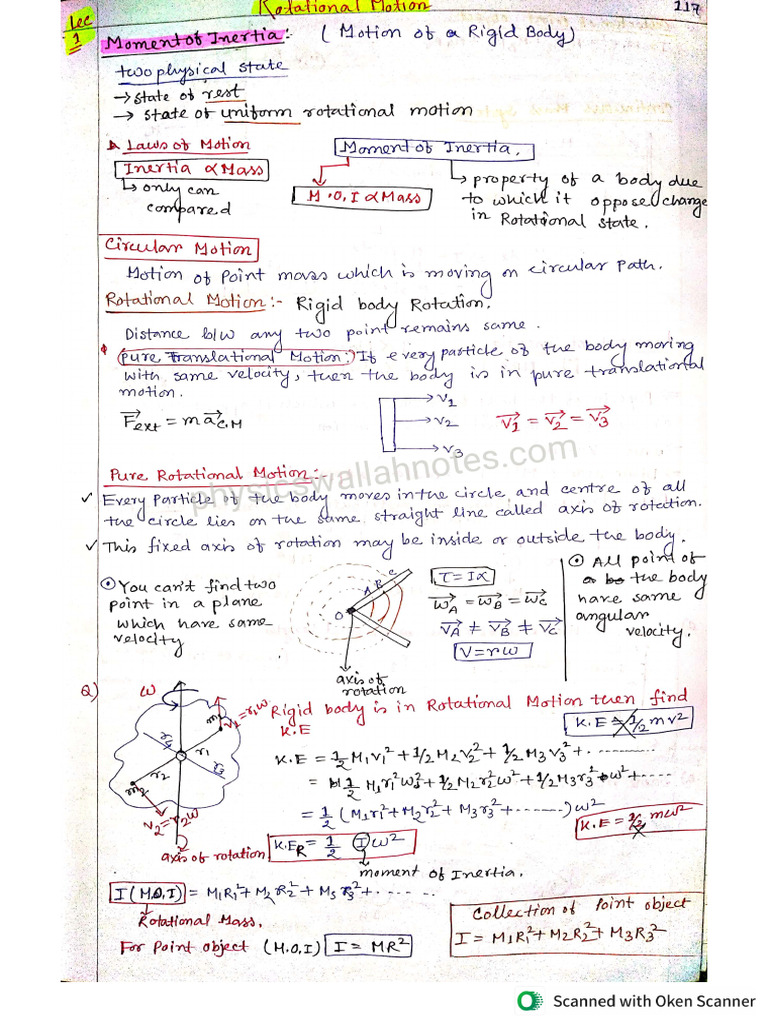 Rotational Motion
117
Lec 1
Moment of Inertia:- ( Motion of a Rigid Body)
two physical state
→ state of rest
→ state of uniform rotational motion
Laws of Motion
Inertia ∝ Mass
↳ only can
compared
Moment of Inertia.
M.O.I ∝ Mass
↳ property of a body due
to which it oppose change
in Rotational state.
Circular Motion
Motion of Point mass which is moving on circular path.
Rotational Motion:- Rigid body Rotation.
Distance b/w any two point remains same.
Pure Translational Motion:) If every particle of the body moving
with same velocity, then the body is in pure translational
motion.
F⃗ext = m a⃗C.M
V1
V2
V3
V⃗1 = V⃗2 = V⃗3
physicswallahnotes.com
Pure Rotational Motion:-
✓ Every Particle of the body moves in the circle and centre of all
the circle lies on the same straight line called axis of rotation.
✓ This fixed axis of rotation may be inside or outside the body.
⊙ You can't find two
point in a plane
which have same
velocity
O
A B C
axis of
rotation
τ = Iα
ω⃗A = ω⃗B = ω⃗C
V⃗A ≠ V⃗B ≠ V⃗C
V = rω
⊙ All point of
the body
have same
angular
velocity.
Q)
ω
m1
V1=r1ω
r4
r1
r2
r3
m2
V2=r2ω
axis of rotation
Rigid body is in Rotational Motion then find
K.E
K.E = 1/2 mv²
K.E = 1/2 M1V1² + 1/2 M2V2² + 1/2 M3V3² + ..........
= 1/2 M1r1²ω² + 1/2 M2r2²ω² + 1/2 M3r3²ω² + ....
= 1/2 (M1r1² + M2r2² + M3r3² + .......) ω²
K.E = 1/2 mω²
K.ER = 1/2 I ω²
moment of Inertia.
I (M.O.I) = M1R1² + M2R2² + M3R3² + ......
Rotational Mass.
For Point object (M.O.I) I = MR²
Collection of Point object
I = M1R1² + M2R2² + M3R3²
Scanned with Oken Scanner